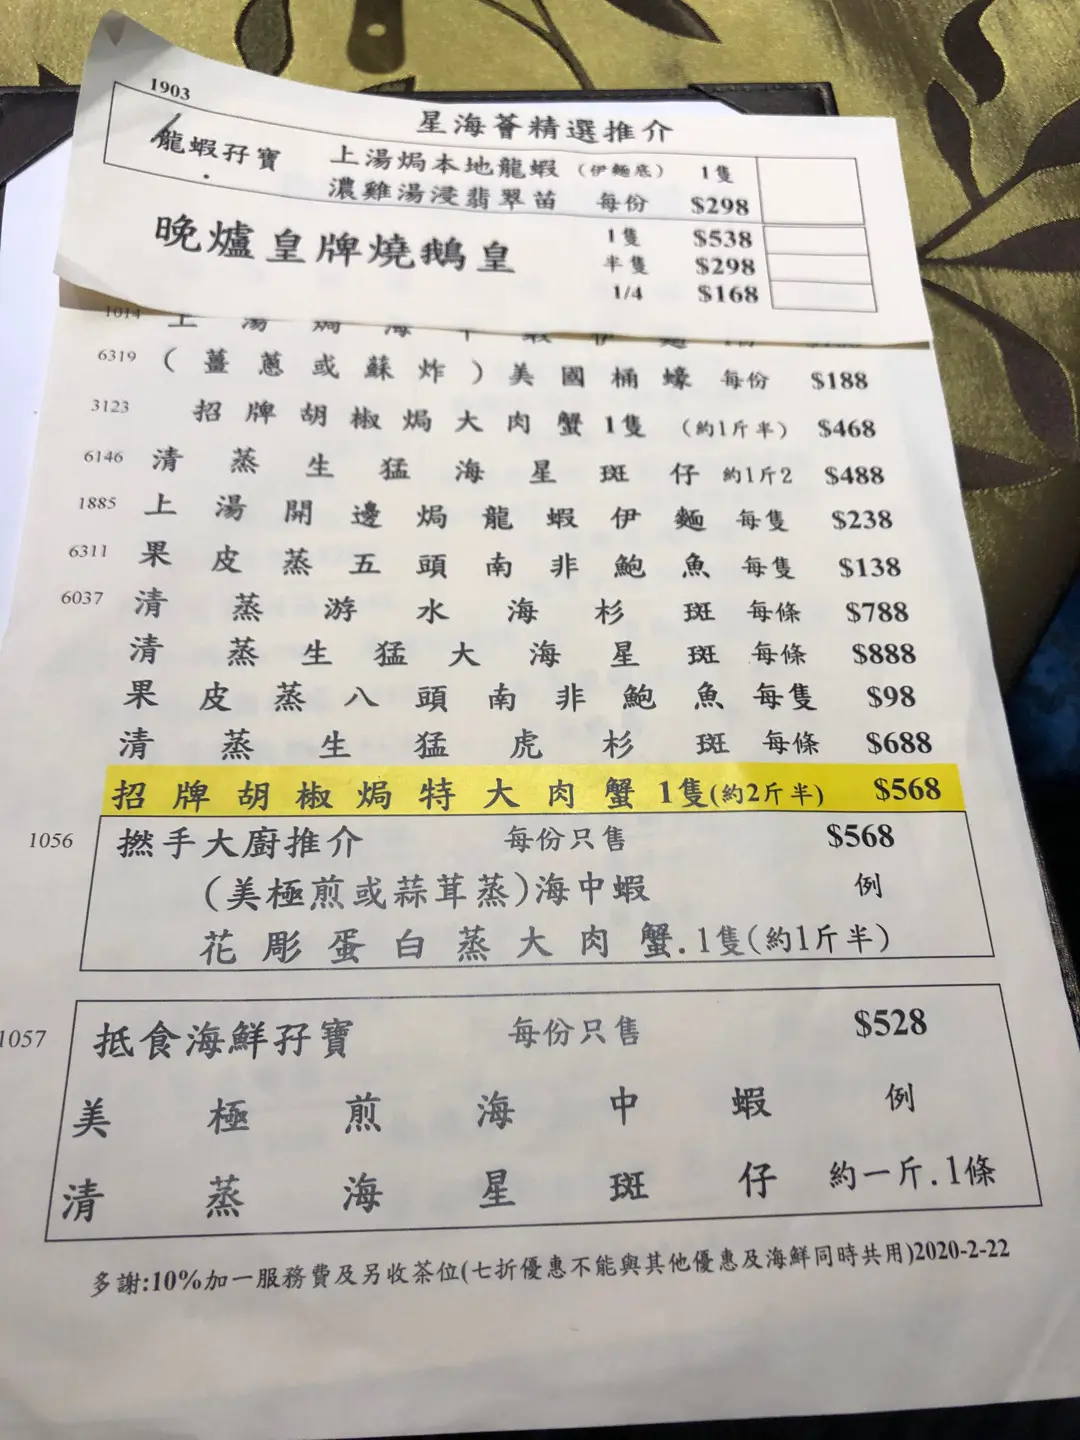 1903
星海薈精選推介
龍蝦孖寶 上湯焗本地龍蝦 (伊麵底) 1隻
濃雞湯浸翡翠苗 每份 $298
晚爐皇牌燒鵝皇 1隻 $538
半隻 $298
1/4 $168
1014 上湯焗海
6319 (薑蔥或蘇炸)美國桶蠔 每份 $188
3123 招牌胡椒焗大肉蟹 1隻 (約1斤半) $468
6146 清蒸生猛海星斑仔 約1斤2 $488
1885 上湯開邊焗龍蝦伊麵 每隻 $238
6311 果皮蒸五頭南非鮑魚 每隻 $138
6037 清蒸游水海杉斑 每條 $788
清蒸生猛大海星斑 每條 $888
果皮蒸八頭南非鮑魚 每隻 $98
清蒸生猛虎杉斑 每條 $688
招牌胡椒焗特大肉蟹 1隻(約2斤半) $568
1056 撚手大廚推介 每份只售 $568
(美極煎或蒜茸蒸)海中蝦 例
花彫蛋白蒸大肉蟹.1隻(約1斤半)
1057 抵食海鮮孖寶 每份只售 $528
美極煎海中蝦 例
清蒸海星斑仔 約一斤.1條
多謝:10%加一服務費及另收茶位(七折優惠不能與其他優惠及海鮮同時共用)2020-2-22